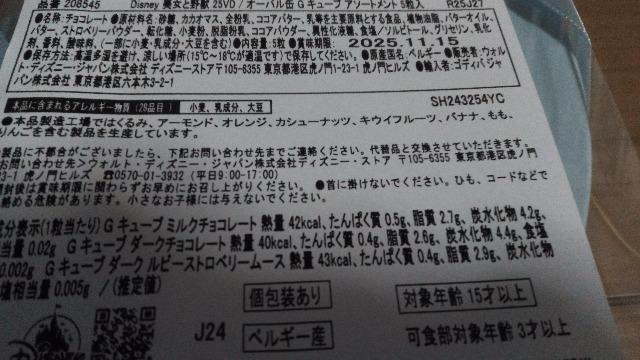 品番 208545 Disney 美女と野獣 25VD / オーバル缶 G キューブ アソートメント 5粒入 R25J27
●名称:チョコレート●原材料名:砂糖、カカオマス、全粉乳、ココアバター、乳等を主要原料とする食品、植物油脂、バターオイル、
バター、ストロベリーパウダー、転化糖、小麦粉、脱脂粉乳、ココアパウダー、異性化液糖、食塩/ソルビトール、グリセリン、乳化
剤、香料、酸味料、(一部に小麦・乳成分・大豆を含む)●内容量:5粒●賞味期限: 2025.11.15
●保存方法:高温多湿を避け、涼しい場所(15℃~18℃が適温です)で保存してください。●原産国名:ベルギー●販売者:ウォル
ト・ディズニー・ジャパン株式会社 ディズニーストア 〒105-6355 東京都港区虎ノ門1-23-1 虎ノ門ヒルズ ●輸入者:ゴディバ ジャ
パン株式会社 東京都港区六本木3-2-1
本品に含まれるアレルギー物質(28品目) 小麦、乳成分、大豆 SH243254YC
●本品製造工場ではくるみ、アーモンド、オレンジ、カシューナッツ、キウイフルーツ、バナナ、もも、
りんごを含む製品を生産しています。
製品に不都合がございましたら、下記お問い合わせ先までご連絡ください。代替品と交換させていただきます。
お問い合わせ先>ウォルト・ディズニー・ジャパン株式会社ディズニー・ストア 〒105-6355 東京都港区虎ノ門
虎ノ門ヒルズ ☎0570-01-3932 (平日9:00-17:00)
開封後は賞味期限に関わらずお早めにお召し上がりください。 ●首に掛けないでください。ひも、コードなどで
絡める危険があります。小さなお子様には与えないでください。
成分表示(1粒当たり) G キューブ ミルクチョコレート 熱量 42kcal、たんぱく質 0.5g、脂質 2.7g、炭水化物 4.2g、
当量 0.02g G キューブ ダークチョコレート 熱量 40kcal、たんぱく質 0.4g、脂質 2.6g、炭水化物 4.4g、食塩
0.002g G キューブ ダーク ルビーストロベリームース 熱量 43kcal、たんぱく質 0.4g、脂質 2.9g、炭水化物
塩相当量 0.005g / (推定値)
個包装あり 対象年齢 15才以上
J24 ベルギー産 可食部対象年齢 3才以上